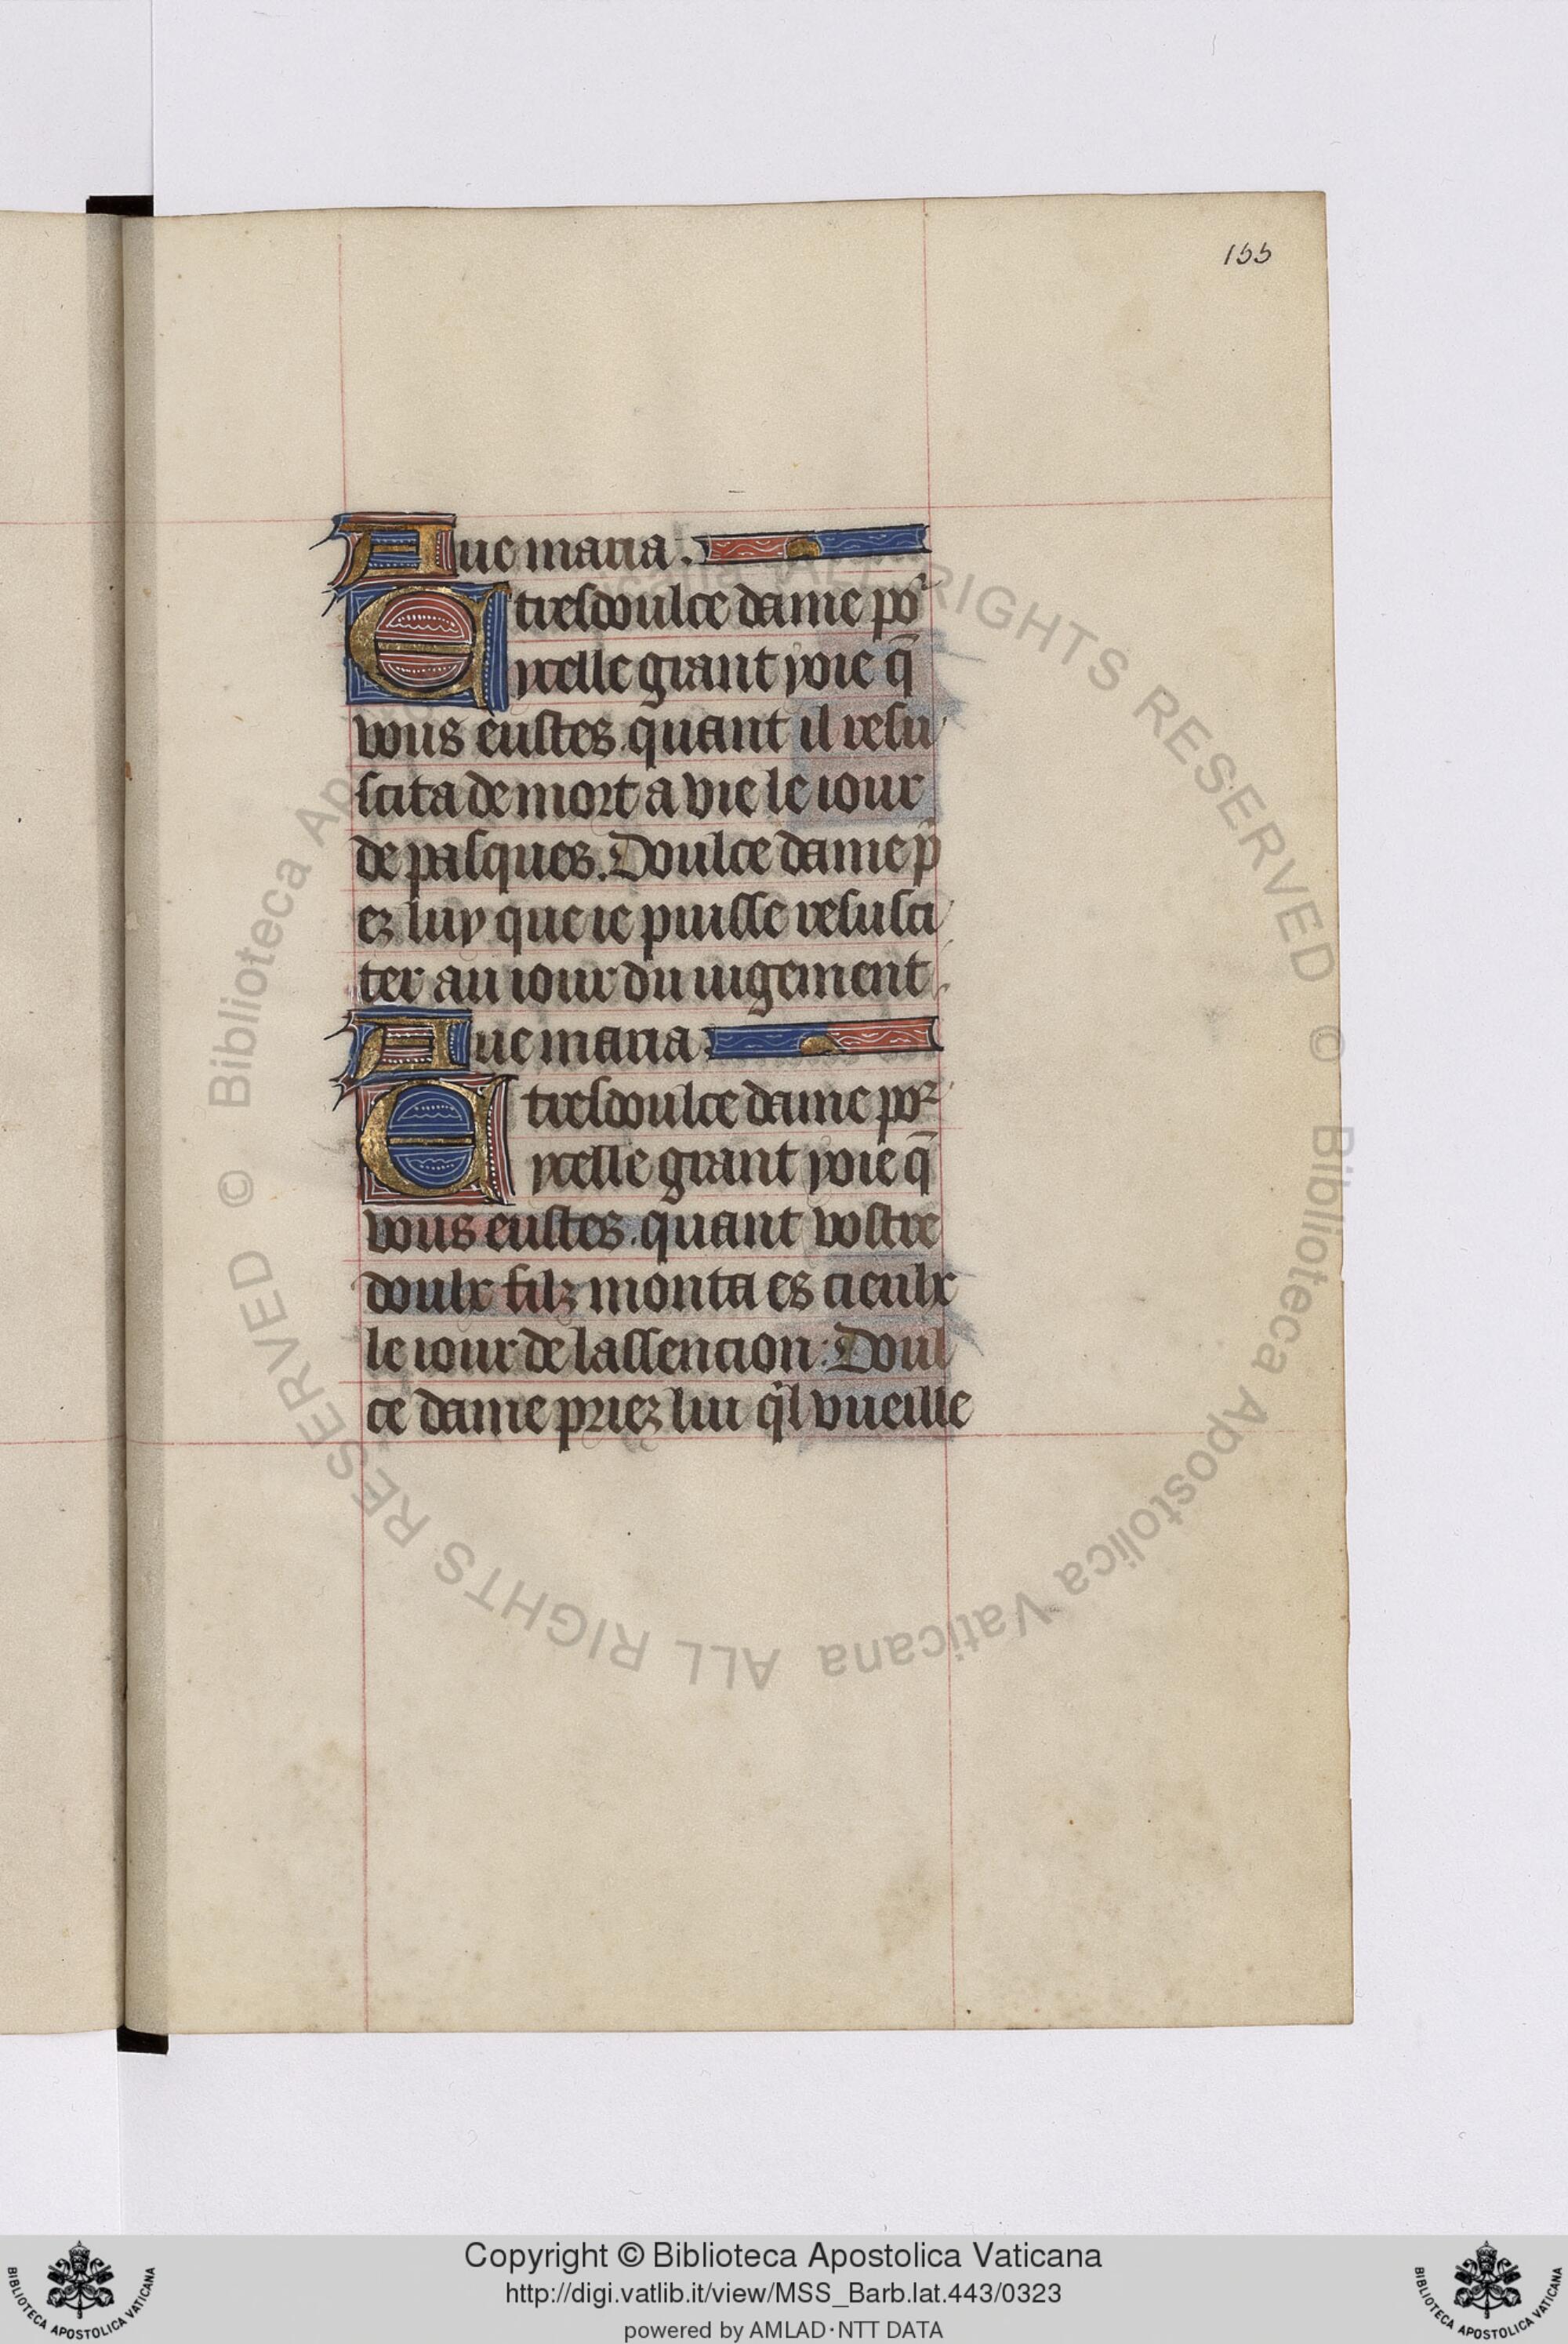 155
Aue maria.
E tresdoulce dame poᷣ
ycelle grant ioie q̄
vous eustes quant il resu
scita de mort a vie le iour
de pasques. Doulce dame p̄
ez luy que ie puisse resusci
ter au iour du iugement.
Aue maria.
E tresdoulce dame poᷣ
ycelle grant ioie q̄
vous eustes. quant vostre
doulx filz monta es cieulx
le iour de lassencion. Doul
ce dame priez lui q̄l vueille
© Biblioteca Apostolica Vaticana ALL RIGHTS RESERVED © Biblioteca Apostolica Vaticana ALL RIGHTS RESERVED
BIBLIOTECA APOSTOLICA VATICANA
Copyright © Biblioteca Apostolica Vaticana
http://digi.vatlib.it/view/MSS_Barb.lat.443/0323
powered by AMLAD·NTT DATA
BIBLIOTECA APOSTOLICA VATICANA